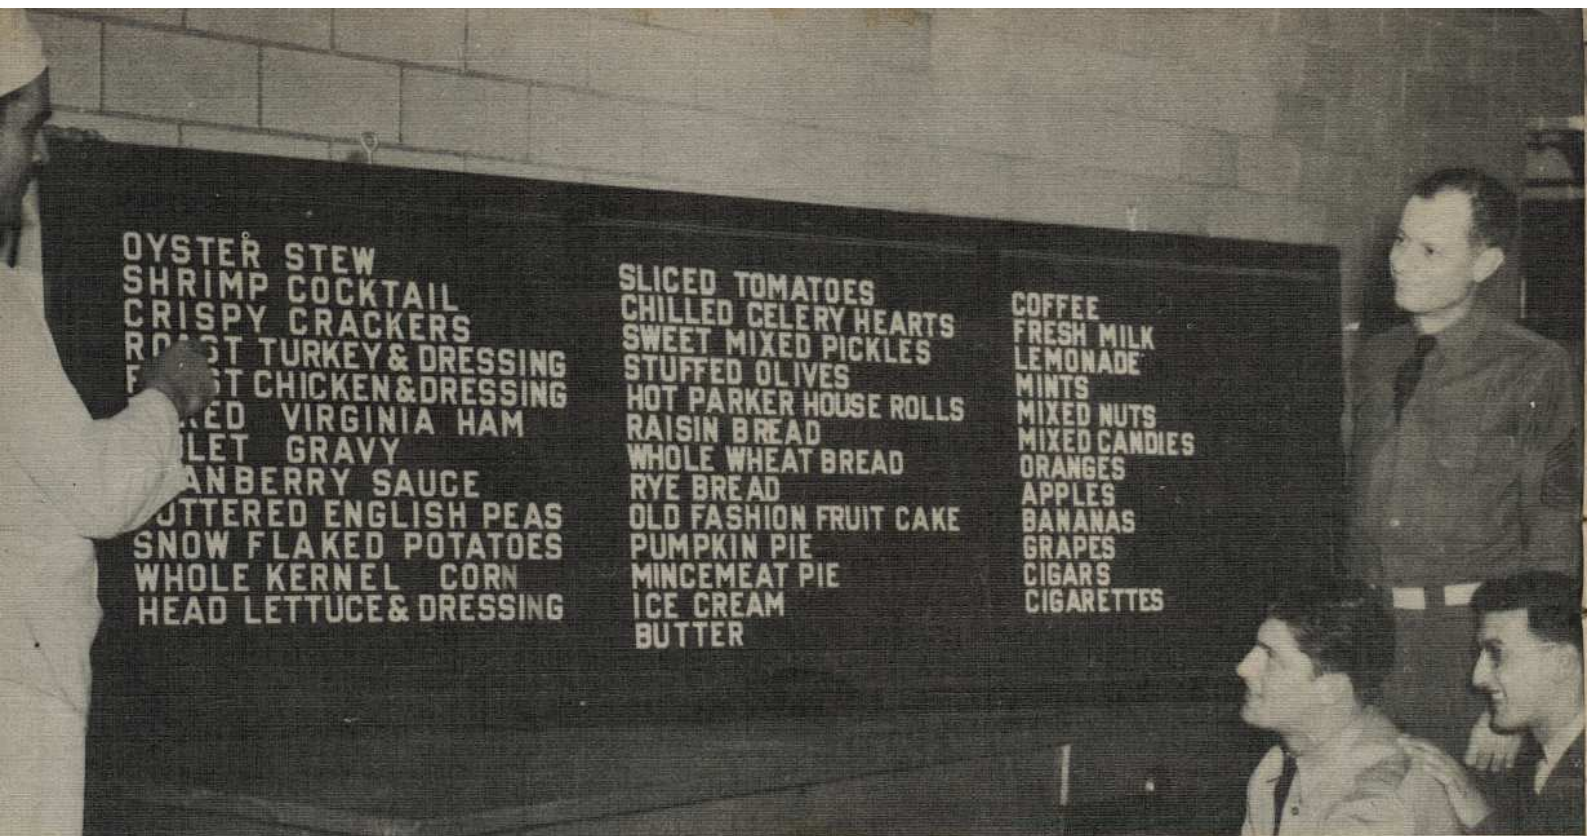 OYSTER STEW
SHRIMP COCKTAIL
CRISPY CRACKERS
ROAST TURKEY & DRESSING
CHICKEN & DRESSING
VIRGINIA HAM
GRAVY
CRANBERRY SAUCE
BUTTERED ENGLISH PEAS
SNOW FLAKED POTATOES
WHOLE KERNEL CORN
HEAD LETTUCE & DRESSING
SLICED TOMATOES
CHILLED CELERY HEARTS
SWEET MIXED PICKLES
STUFFED OLIVES
HOT PARKER HOUSE ROLLS
RAISIN BREAD
WHOLE WHEAT BREAD
RYE BREAD
OLD FASHION FRUIT CAKE
PUMPKIN PIE
MINCEMEAT PIE
ICE CREAM
BUTTER
COFFEE
FRESH MILK
LEMONADE
MINTS
MIXED NUTS
MIXED CANDIES
ORANGES
APPLES
BANANAS
GRAPES
CIGARS
CIGARETTES